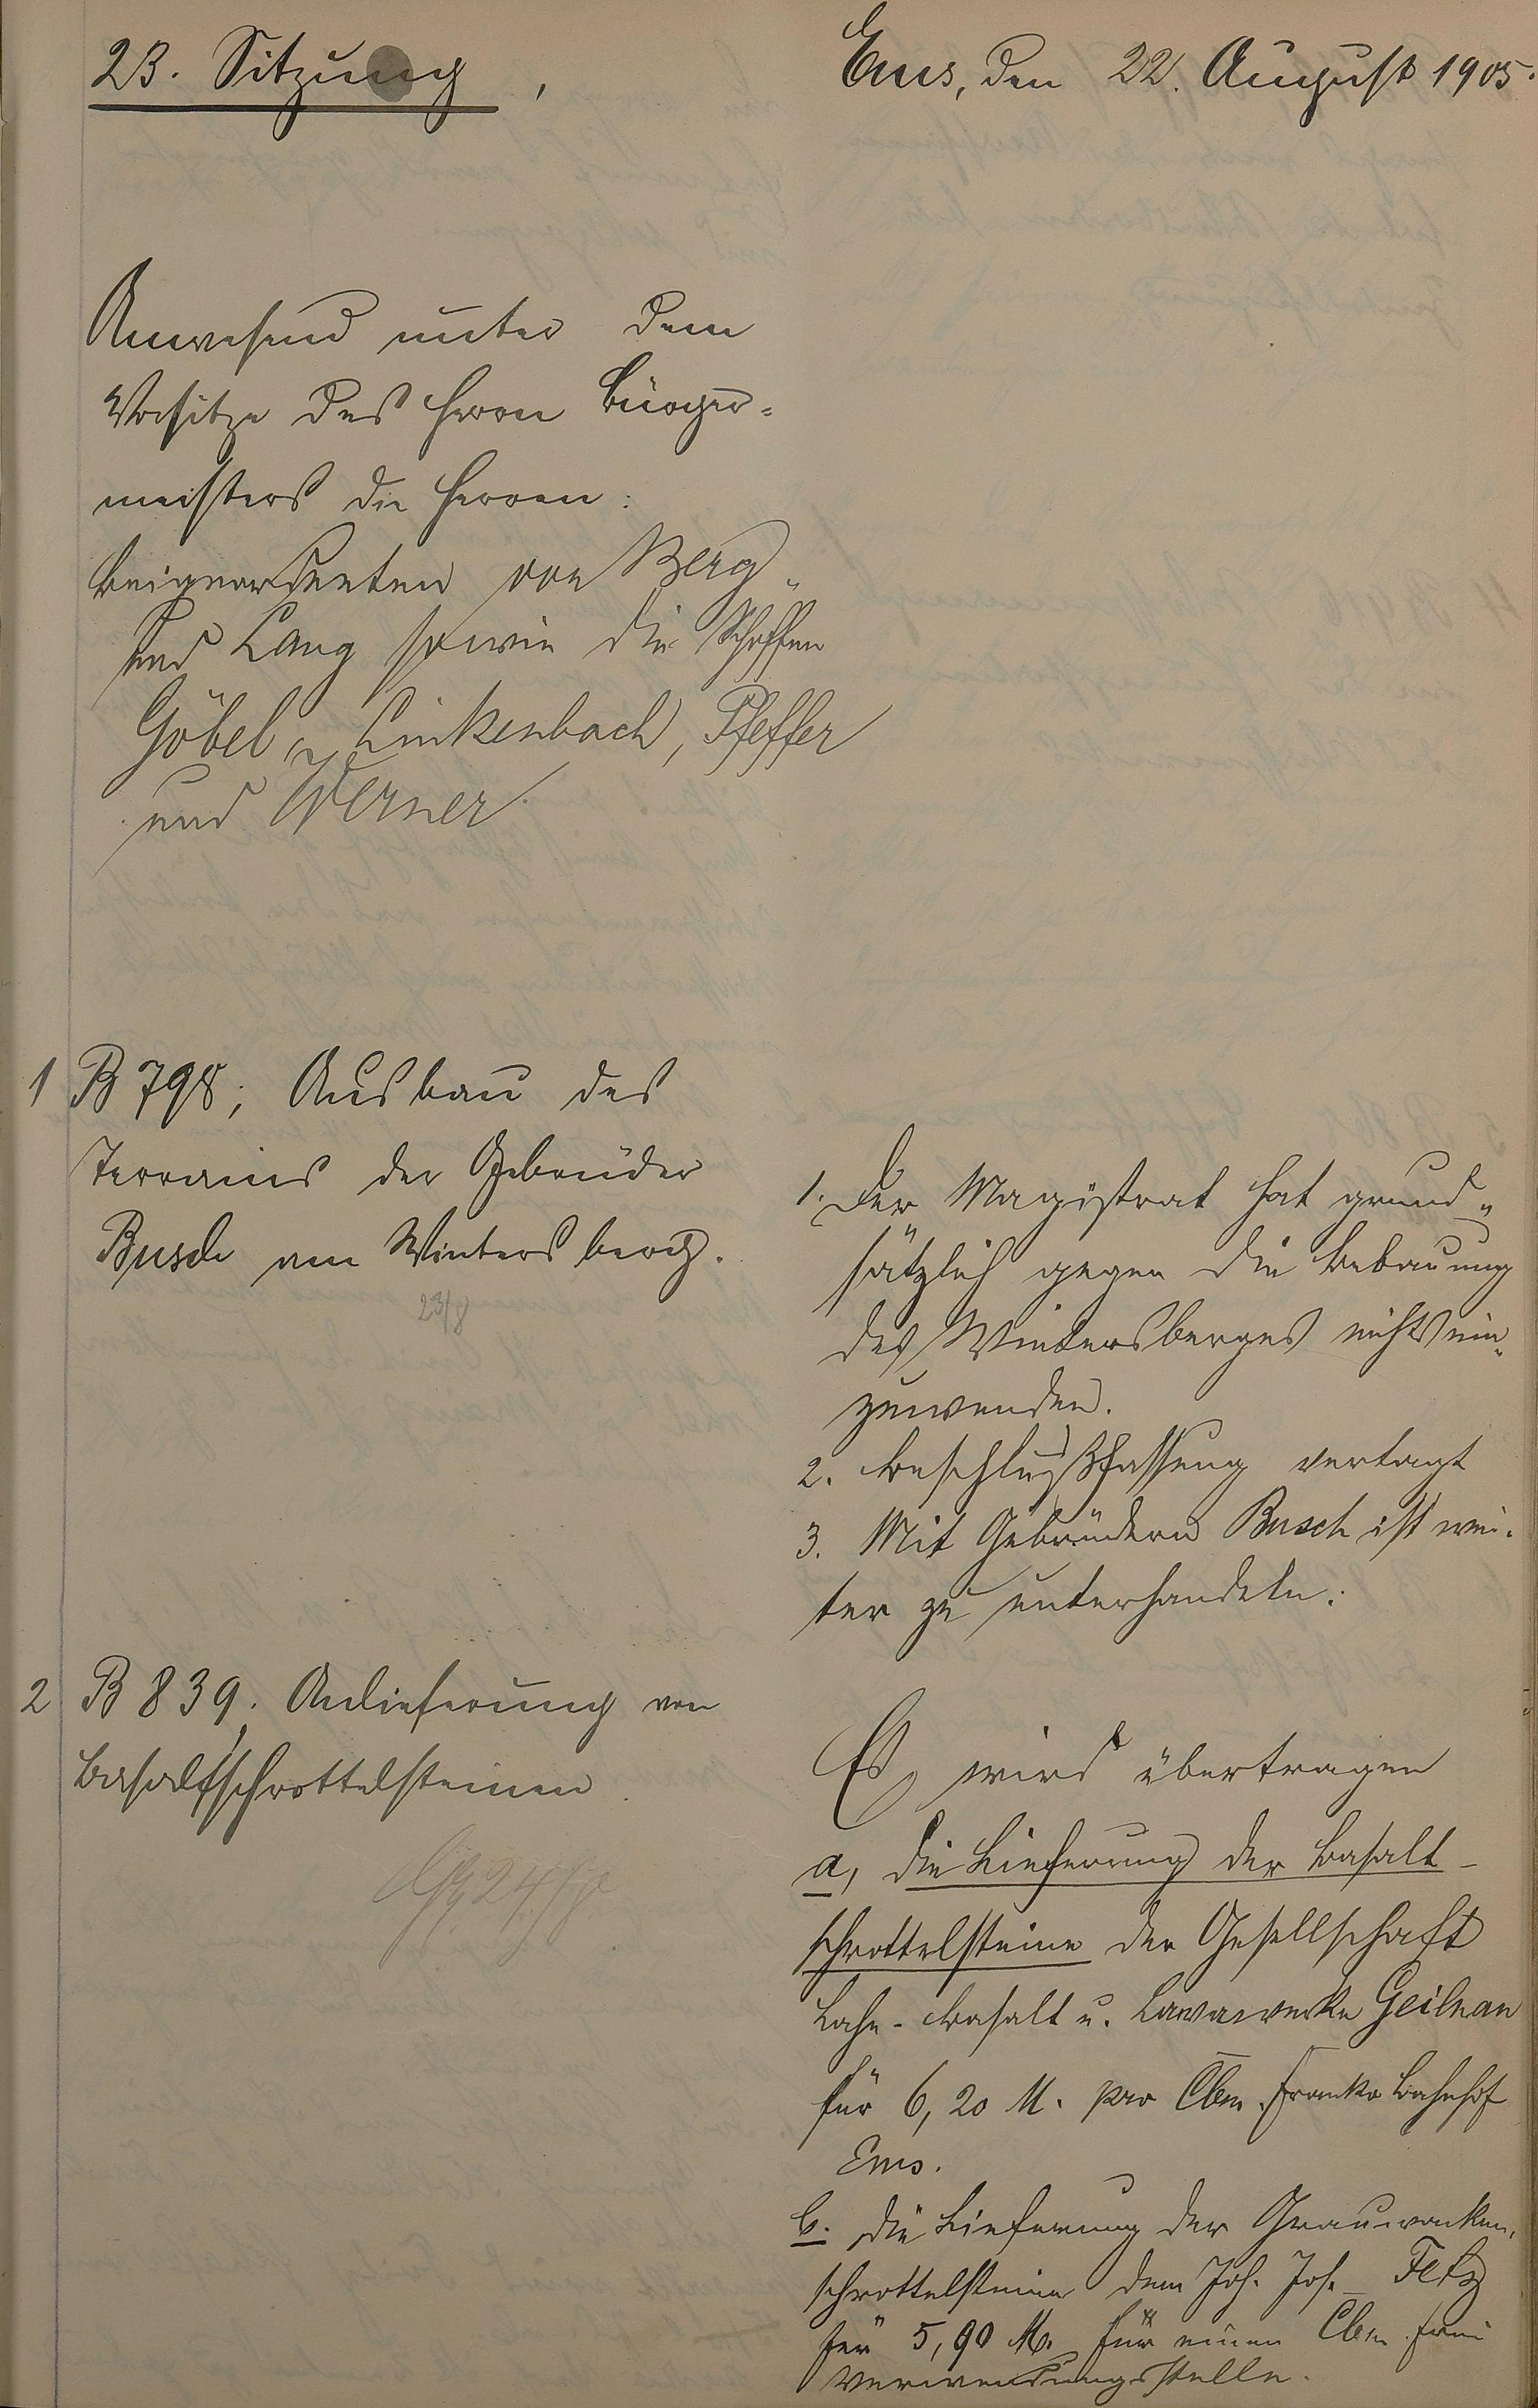 23. Sitzung,
Ems, den 22. August 1905.
Anwesend unter dem
Vorsitze des Herrn Bürger=
meisters die Herren:
Beigeordneten von Berg
und Lang sowie die Schöffen
Göbel, Linkenbach, Pfeffer
und Werner.
1 B 798, Ausbau des
Terrains der Gebrüder
Busch am Wintersberg.
23/8
1. Der Magistrat hat grund„
sätzlich gegen die Bebauung
des Wintersberges nichts ein„
zuwenden.
2. Beschlußfassung vertagt
3. Mit Gebrüdern Busch ist wei-
ter zu unterhandeln.
2 B 839. Anlieferung von
Basaltschrottelsteinen
24/8
Es wird übertragen
a, die Lieferung der Basalt-
schrottelsteine der Gesellschaft
Lahn-Basalt u. Lavawerke Geilnau
für 6,20 M. pro Cbm. franko Bahnhof
Ems.
b. die Lieferung der Grauwacken-
schrottelsteine dem Joh. Jos. Fetz
für 5,90 M. für einen Cbm frei
Verwendungsstelle.